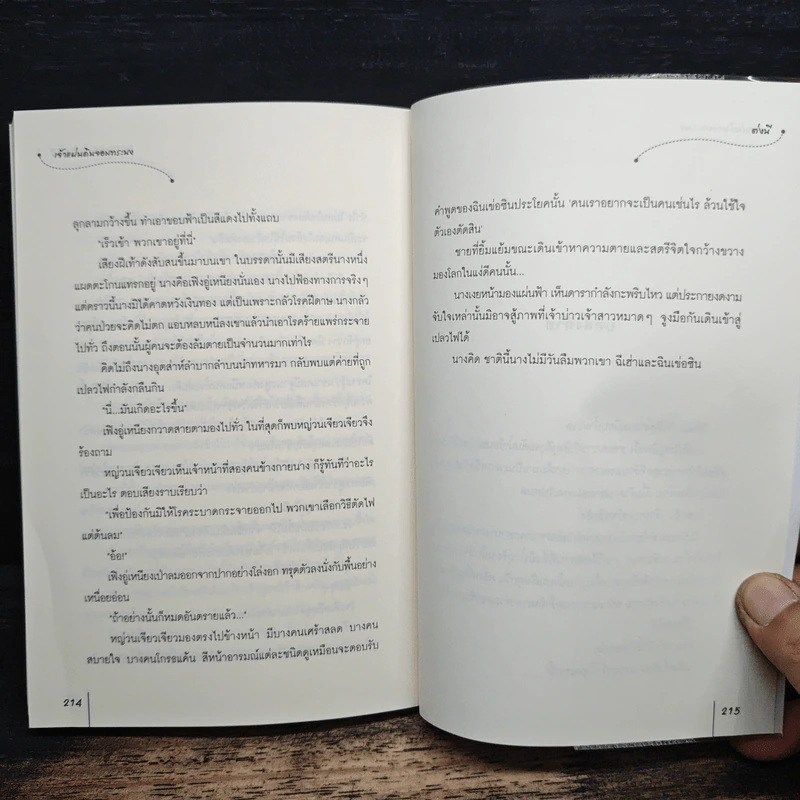 เจ้าแผ่นดินจอมทระนง
ลุกลามกว้างขึ้น ทำเอาขอบฟ้าเป็นสีแดงไปทั้งแถบ
"เร็วเข้า พวกเขาอยู่ที่นี่"
เสียงฝีเท้าดังสับสนขึ้นมาบนเขา ในบรรดานั้นมีเสียงสตรีนางหนึ่ง
แผดตะโกนแทรกอยู่ นางคือเฟิงอู่เหนียงนั่นเอง นางไปฟ้องทางการจริงๆ
แต่คราวนี้นางมิได้คาดหวังเงินทอง แต่เป็นเพราะกลัวโรคฝีดาษ นางกลัว
ว่าคนป่วยจะคิดไม่ตก แอบหลบหนีลงเขาแล้วนำเอาโรคร้ายแพร่กระจาย
ไปทั่ว ถึงตอนนั้นผู้คนจะต้องล้มตายเป็นจำนวนมากเท่าไร
คิดไม่ถึงนางอุตส่าห์ลำบากลำบนนำทหารมา กลับพบแต่ค่ายที่ถูก
เปลวไฟกำลังกลืนกิน
"นี่...มันเกิดอะไรขึ้น"
เฟิงอู่เหนียงกวาดสายตามองไปทั่ว ในที่สุดก็พบหญ่วนเจียวเจียวจึง
ร้องถาม
หญ่วนเจียวเจียวเห็นเจ้าหน้าที่สองคนข้างกายนาง ก็รู้ทันทีว่าอะไร
เป็นอะไร ตอบเสียงราบเรียบว่า
"เพื่อป้องกันมิให้โรคระบาดกระจายออกไป พวกเขาเลือกวิธีตัดไฟ
แต่ต้นลม"
"อ้อ!"
เฟิงอู่เหนียงเป่าลมออกจากปากอย่างโล่งอก ทรุดตัวลงนั่งกับพื้นอย่าง
เหนื่อยอ่อน
"ถ้าอย่างนั้นก็หมดอันตรายแล้ว..."
หญ่วนเจียวเจียวมองตรงไปข้างหน้า มีบางคนเศร้าสลด บางคน
สบายใจ บางคนโกรธแค้น สีหน้าอารมณ์แต่ละชนิดดูเหมือนจะตอบรับ
214
ต่งนี
คำพูดของฉินเข่อซินประโยคนั้น 'คนเราอยากจะเป็นคนเช่นไร ล้วนใช้ใจ
ตัวเองตัดสิน'
ชายที่ยิ้มแย้มขณะเดินเข้าหาความตายและสตรีจิตใจกว้างขวาง
มองโลกในแง่ดีคนนั้น...
นางเงยหน้ามองแผ่นฟ้า เห็นดารากำลังกะพริบไหว แต่ประกายงดงาม
จับใจเหล่านั้นมิอาจสู้ภาพที่เจ้าบ่าวเจ้าสาวหมาดๆ จูงมือกันเดินเข้าสู่
เปลวไฟได้
นางคิด ชาตินี้นางไม่มีวันลืมพวกเขา ฉีเฮ่าและฉินเข่อซิน
215